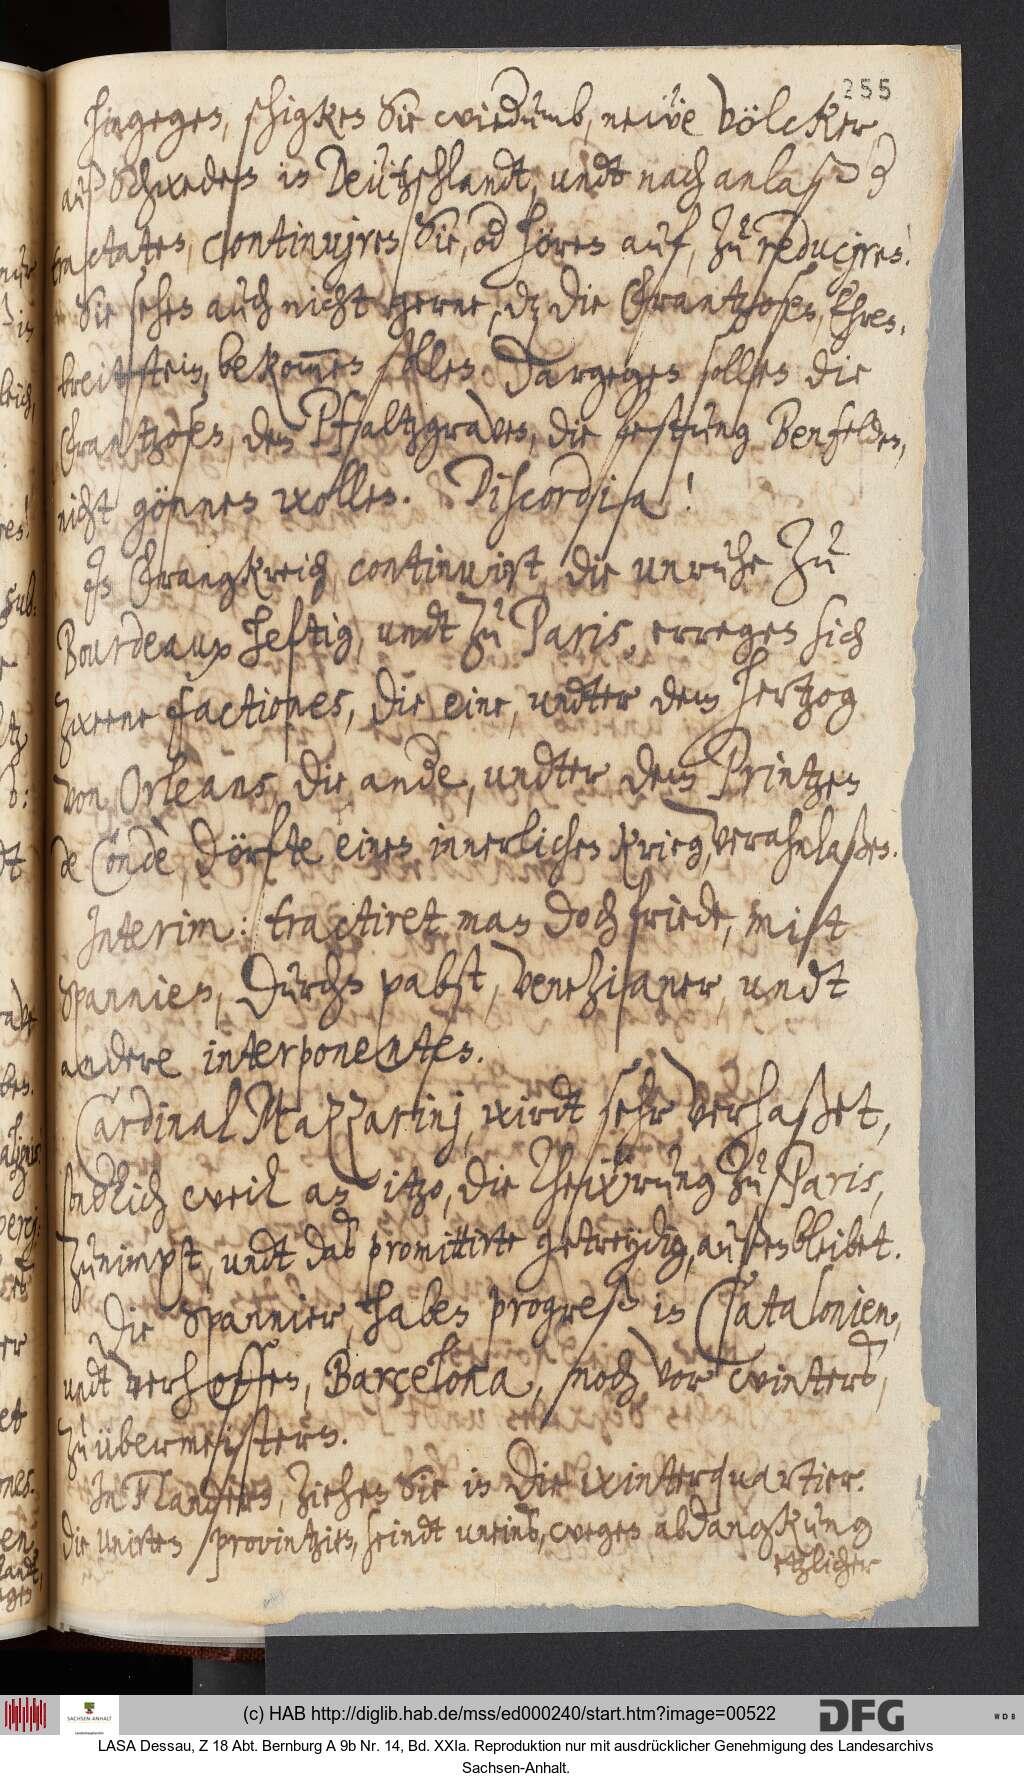 255
hingegen, schigken Sie wiedumb, neùe Völcker,
auß Schweden in Deützschlandt, undt nach anlaß d
tractaten, continuiren Sie, od hören auf, zu reduciren.
Sie sehen auch nicht gerne, dz die Frantzosen, Ehren,
breitstein, bekom̅en sollen. Dargegen sollen die
Frantzosen, dem Pfaltzgraven, die festung Benfelden,
nicht gönnen wollen. Discordia!
In Frangkreich, continuirt, die unruhe zu
Bourdeaux heftig, undt zu Paris, erregen sich
zweene factiones, die eine, undter dem Hertzog
von Orleans, die ande, undter dem Printzen
de Condè, dörfte einen innerlichen krieg, verahnlaßen.
Interim: tractiret man doch friede, mitt
Spannien, durchs pabst, Venezianer, undt
andere interponenten.
Cardinal Mazzarinj, wirdt sehr verhaßet,
sondlich weil an itzo, die Theẅrung zu Paris,
zunimpt, undt das promittirte getreydig, außenbleibet.
Die Spannier, haben progreß in Catalonien,
undt verhoffen, Barcelona, noch vor winters,
zu übermeistern.
In Flandern, ziehen Sie in die winterquartier.
Die Unirten provintzien, seindt uneins, wegen abdangkung
etzlicher
(c) HAB http://diglib.hab.de/mss/ed000240/start.htm?image=00522
DFG
WDB
SACHSEN-ANHALT
LASA Dessau, Z 18 Abt. Bernburg A 9b Nr. 14, Bd. XXIa. Reproduktion nur mit ausdrücklicher Genehmigung des Landesarchivs
Sachsen-Anhalt.